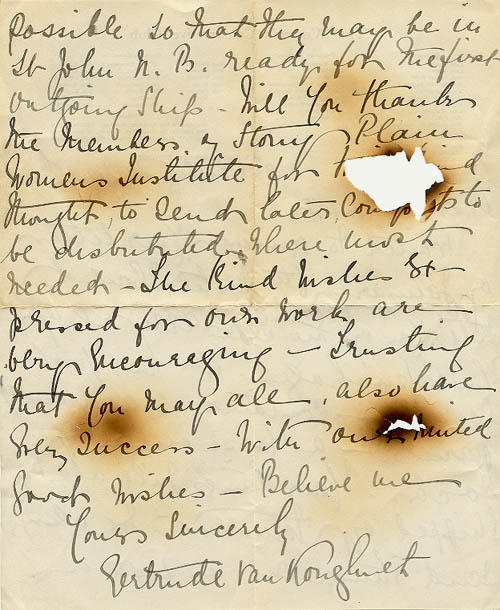 Possible so that they may be in
St John N. B. ready for the first
outgoing Ship - Will you thank
the members of Stony Plain
Womens Institute for
thought, to send later, Comforts to
be distributed where most
needed - The Kind Wishes Ex-
pressed for our work, are
very Encouraging - Trusting
that you may all, also have
Every Success - With our united
Good Wishes - Believe me
Yours Sincerely
Gertrude Van Koughnet